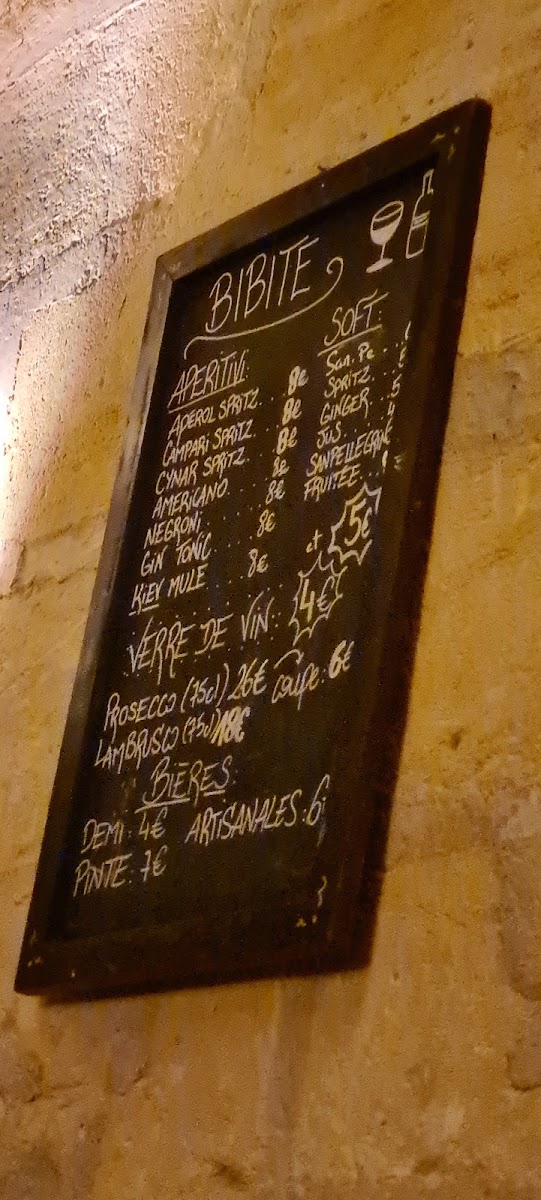 BIBITE
APERITIVI:
APEROL SPRITZ... 8€
CAMPARI SPRITZ... 8€
CYNAR SPRITZ... 8€
AMERICANO... 8€
NEGRONI... 8€
GIN TONIC... 8€
KIEV MULE... 8€
SOFT:
San. Pe...
SPRITZ...
GINGER... 5
JUS... 4
SANPELLEGRINE
FRUITÉE...
VERRE DE VIN: 4€ et 5€
PROSECCO (75cl) 26€ coupe: 6€
LAMBRUSCO (75cl) 18€
BIÈRES:
DEMI: 4€ ARTISANALES: 6
PINTE: 7€